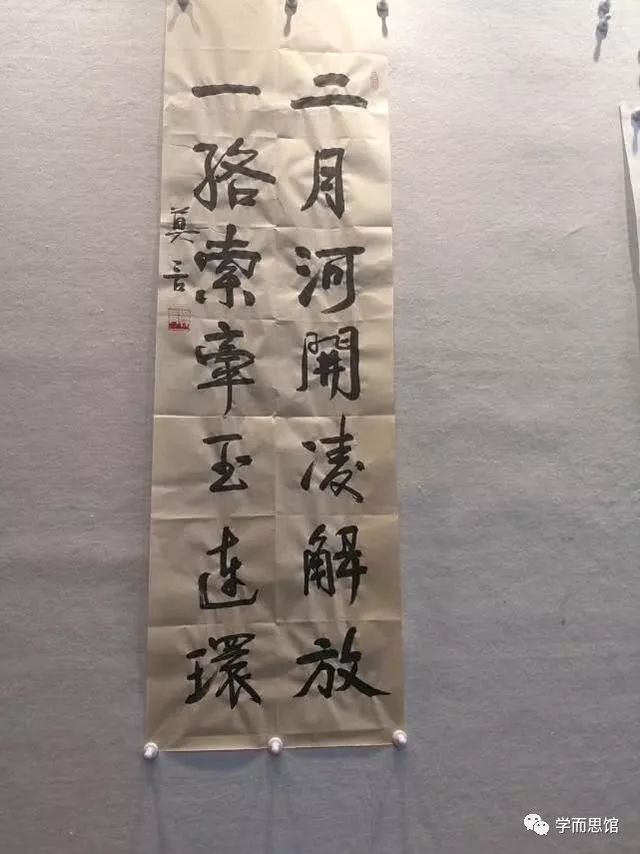 二月河開凌解放
一路索牽玉连環
莫言
学而思馆